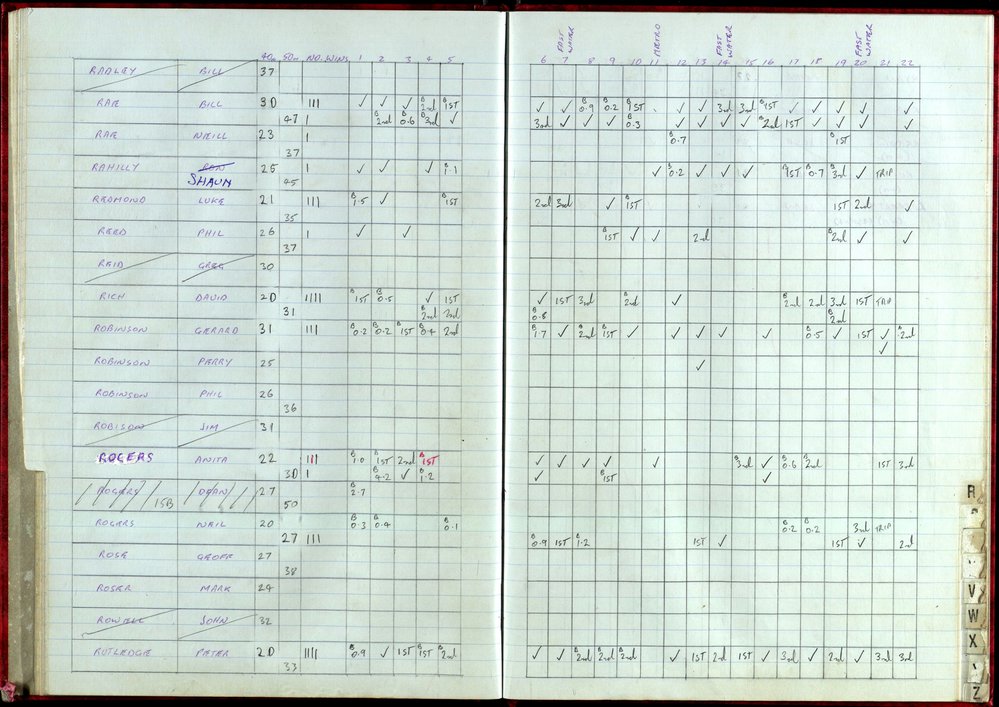 40m 50m NO. WINS 1 2 3 4 5 6 7 8 9 10 11 12 13 14 15 16 17 18 19 20 21 22
FAST WATER METRO FAST WATER FAST WATER
RADLEY BILL 37
RAE BILL 30 IIII ✓ ✓ ✓ B 2nd B 1ST ✓ ✓ B 0.9 B 0.2 B 1ST ✓ ✓ 3rd 3rd B 1ST ✓ ✓ ✓ ✓ ✓
47 1 B 2nd B 0.6 B 3rd ✓ 3rd ✓ ✓ ✓ B 0.3 ✓ ✓ ✓ ✓ B 2nd 1ST ✓ ✓ ✓ ✓
RAE NEILL 23 1 B 0.7 B 1ST
37
RAHILLY RON 25 1 ✓ ✓ ✓ B 1.1 ✓ B 0.2 ✓ ✓ ✓ B 1ST B 0.7 B 3rd ✓ TRIP
SHAUN 45
REDMOND LUKE 21 IIII B 1.5 ✓ B 1ST 2nd 3rd ✓ B 1ST 1ST 2nd ✓
35
REED PHIL 26 1 ✓ ✓ B 1ST ✓ ✓ 2nd B 2nd ✓ ✓
37
REID GREG 30
RICH DAVID 20 IIII B 1ST B 0.5 ✓ 1ST ✓ 1ST 3rd B 2nd ✓ B 2nd 2nd 3rd 1ST TRIP
31 B 2nd 2nd B 0.8 B 2nd
ROBINSON GERARD 31 IIII B 0.2 B 0.2 B 1ST B 0.4 2nd B 1.7 ✓ B 2nd B 1ST ✓ ✓ ✓ ✓ ✓ B 0.5 ✓ 1ST ✓ B 2nd
✓
ROBINSON PERRY 25 ✓
ROBINSON PHIL 26
36
ROBISON JIM 31
ROGERS ANITA 22 IIII B 1.0 B 1ST 2nd B 1ST ✓ ✓ ✓ ✓ ✓ B 3rd ✓ B 0.6 B 2nd 1ST 3rd
30 1 B 4.2 ✓ B 1.2 ✓ B 1ST ✓
ROGERS DEAN 27 B 2.7
ISB 50
ROGERS NEIL 20 B 0.3 B 0.4 B 0.1 B 0.2 B 0.2 3rd TRIP
27 IIII B 0.9 1ST B 1.2 1ST ✓ 1ST ✓ 2nd
ROSE GEOFF 27
38
ROSER MARK 24
ROWELL JOHN 32
RUTLEDGE PETER 20 IIII B 0.9 ✓ 1ST B 1ST B 2nd ✓ ✓ B 2nd B 2nd B 2nd ✓ 1ST 2nd 1ST ✓ 3rd ✓ 2nd ✓ 3rd 3rd
33
R
V
W
X
Z